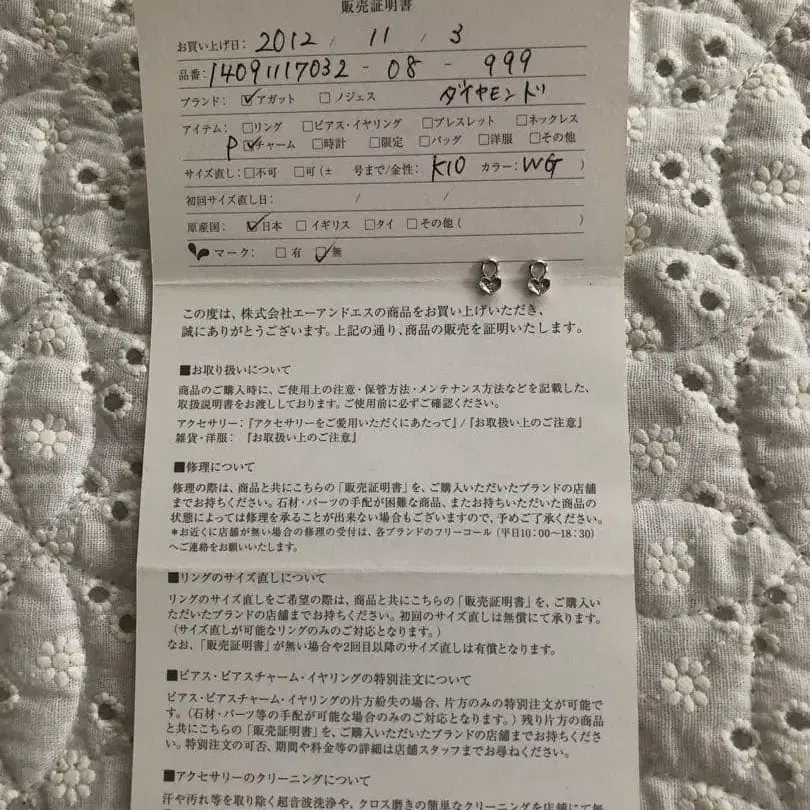 販売証明書
お買い上げ日: 2012 / 11 / 3
品番: 14091117032 - 08 - 999
ブランド: ☑アガット □ノジェス ダイヤモンド
アイテム: □リング □ピアス・イヤリング □ブレスレット □ネックレス
P ☑チャーム □時計 □限定 □バッグ □洋服 □その他
サイズ直し: □不可 □可(± 号まで/金性: K10 カラー: WG )
初回サイズ直し日: / /
原産国: ☑日本 □イギリス □タイ □その他( )
マーク: □有 ☑無
この度は、株式会社エーアンドエスの商品をお買い上げいただき、
誠にありがとうございます。上記の通り、商品の販売を証明いたします。
■お取り扱いについて
商品のご購入時に、ご使用上の注意・保管方法・メンテナンス方法などを記載した、
取扱説明書をお渡ししております。ご使用前に必ずご確認ください。
アクセサリー:『アクセサリーをご愛用いただくにあたって』/『お取扱い上のご注意』
雑貨・洋服: 『お取扱い上のご注意』
■修理について
修理の際は、商品と共にこちらの「販売証明書」を、ご購入いただいたブランドの店舗
までお持ちください。石材・パーツの手配が困難な商品、またお持ちいただいた商品の
状態によっては修理を承ることが出来ない場合もございますので、予めご了承ください。
*お近くに店舗が無い場合の修理の受付は、各ブランドのフリーコール(平日10:00〜18:30)
へご連絡をお願いいたします。
■リングのサイズ直しについて
リングのサイズ直しをご希望の際は、商品と共にこちらの「販売証明書」を、ご購入い
ただいたブランドの店舗までお持ちください。初回のサイズ直しは無償にて承ります。
(サイズ直しが可能なリングのみのご対応となります。)
なお、「販売証明書」が無い場合や2回目以降のサイズ直しは有償となります。
■ピアス・ピアスチャーム・イヤリングの特別注文について
ピアス・ピアスチャーム・イヤリングの片方紛失の場合、片方のみの特別注文が可能で
す。(石材・パーツ等の手配が可能な場合のみのご対応となります。)残り片方の商品
と共にこちらの「販売証明書」を、ご購入いただいたブランドの店舗までお持ちくださ
い。特別注文の可否、期間や料金等の詳細は店舗スタッフまでお尋ねください。
■アクセサリーのクリーニングについて
汗や汚れ等を取り除く超音波洗浄や、クロス磨きの簡単なクリーニングを店舗にて無